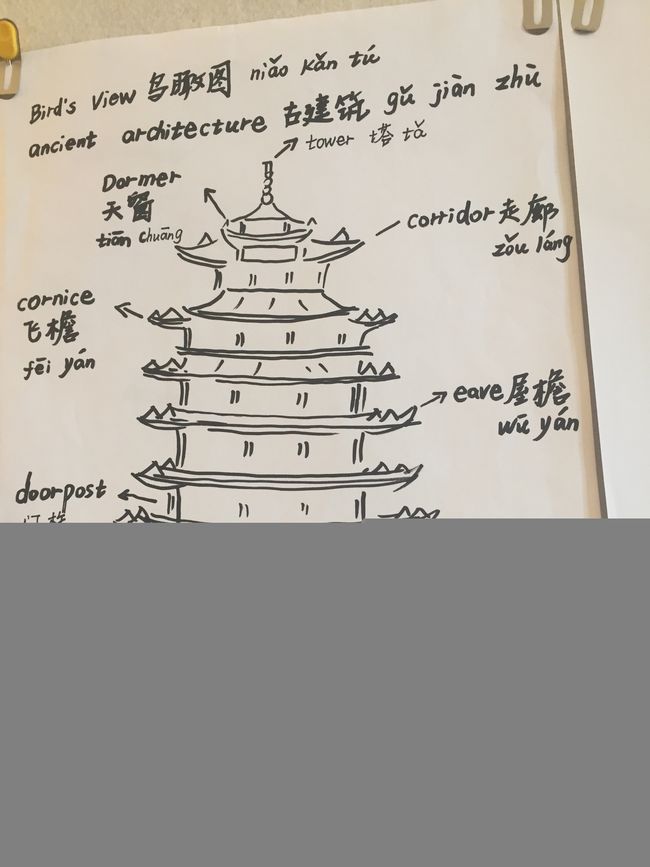 Bird's View 鸟瞰图 niǎo kǎn tú
ancient architecture 古建筑 gǔ jiàn zhù
tower 塔 tǎ
Dormer
天窗
tiān chuāng
corridor 走廊
zǒu láng
cornice
飞檐
fēi yán
eave 屋檐
wū yán
doorpost